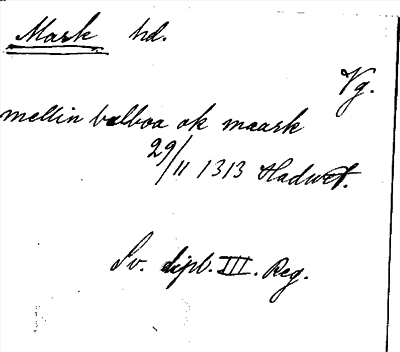 Mark hd.
Vg.
mellin balboa ok maark
29/11 1313 Hadwet.
Sv. dipl. III. Reg.